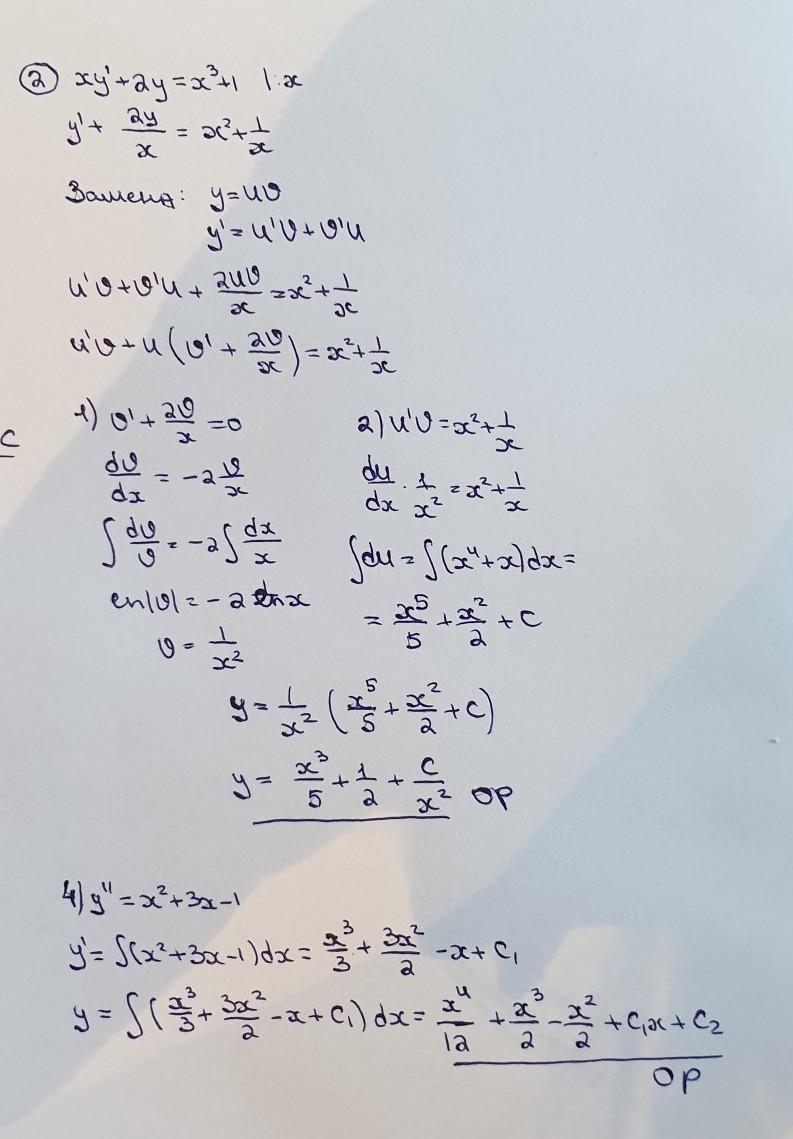 2 xy'+2y=x³+1 |:x
y'+ 2y/x = x²+1/x
Замена: y=uv
y'=u'v+v'u
u'v+v'u+ 2uv/x =x²+1/x
u'v+u(v'+ 2v/x)=x²+1/x
1) v'+ 2v/x =0
dv/dx = -2 v/x
∫ dv/v = -2∫ dx/x
ln|v|= -2 ln x
v= 1/x²
2) u'v=x²+1/x
du/dx · 1/x² = x²+1/x
∫du=∫(x⁴+x)dx=
= x⁵/5 + x²/2 + C
y= 1/x² (x⁵/5 + x²/2 + C)
y= x³/5 + 1/2 + C/x² ОР
C
4) y''=x²+3x-1
y'=∫(x²+3x-1)dx= x³/3 + 3x²/2 -x+C₁
y=∫(x³/3 + 3x²/2 -x+C₁)dx= x⁴/12 + x³/2 - x²/2 +C₁x+C₂
ОР